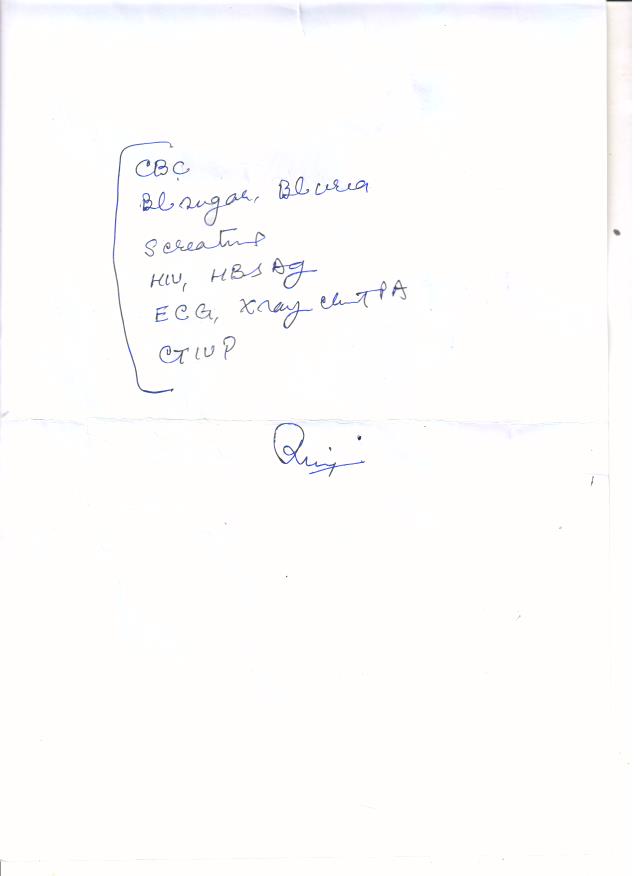 CBC
Bl sugar, Bl urea
S creatine
HIV, HBSAg
ECG, Xray chest PA
CT IVP